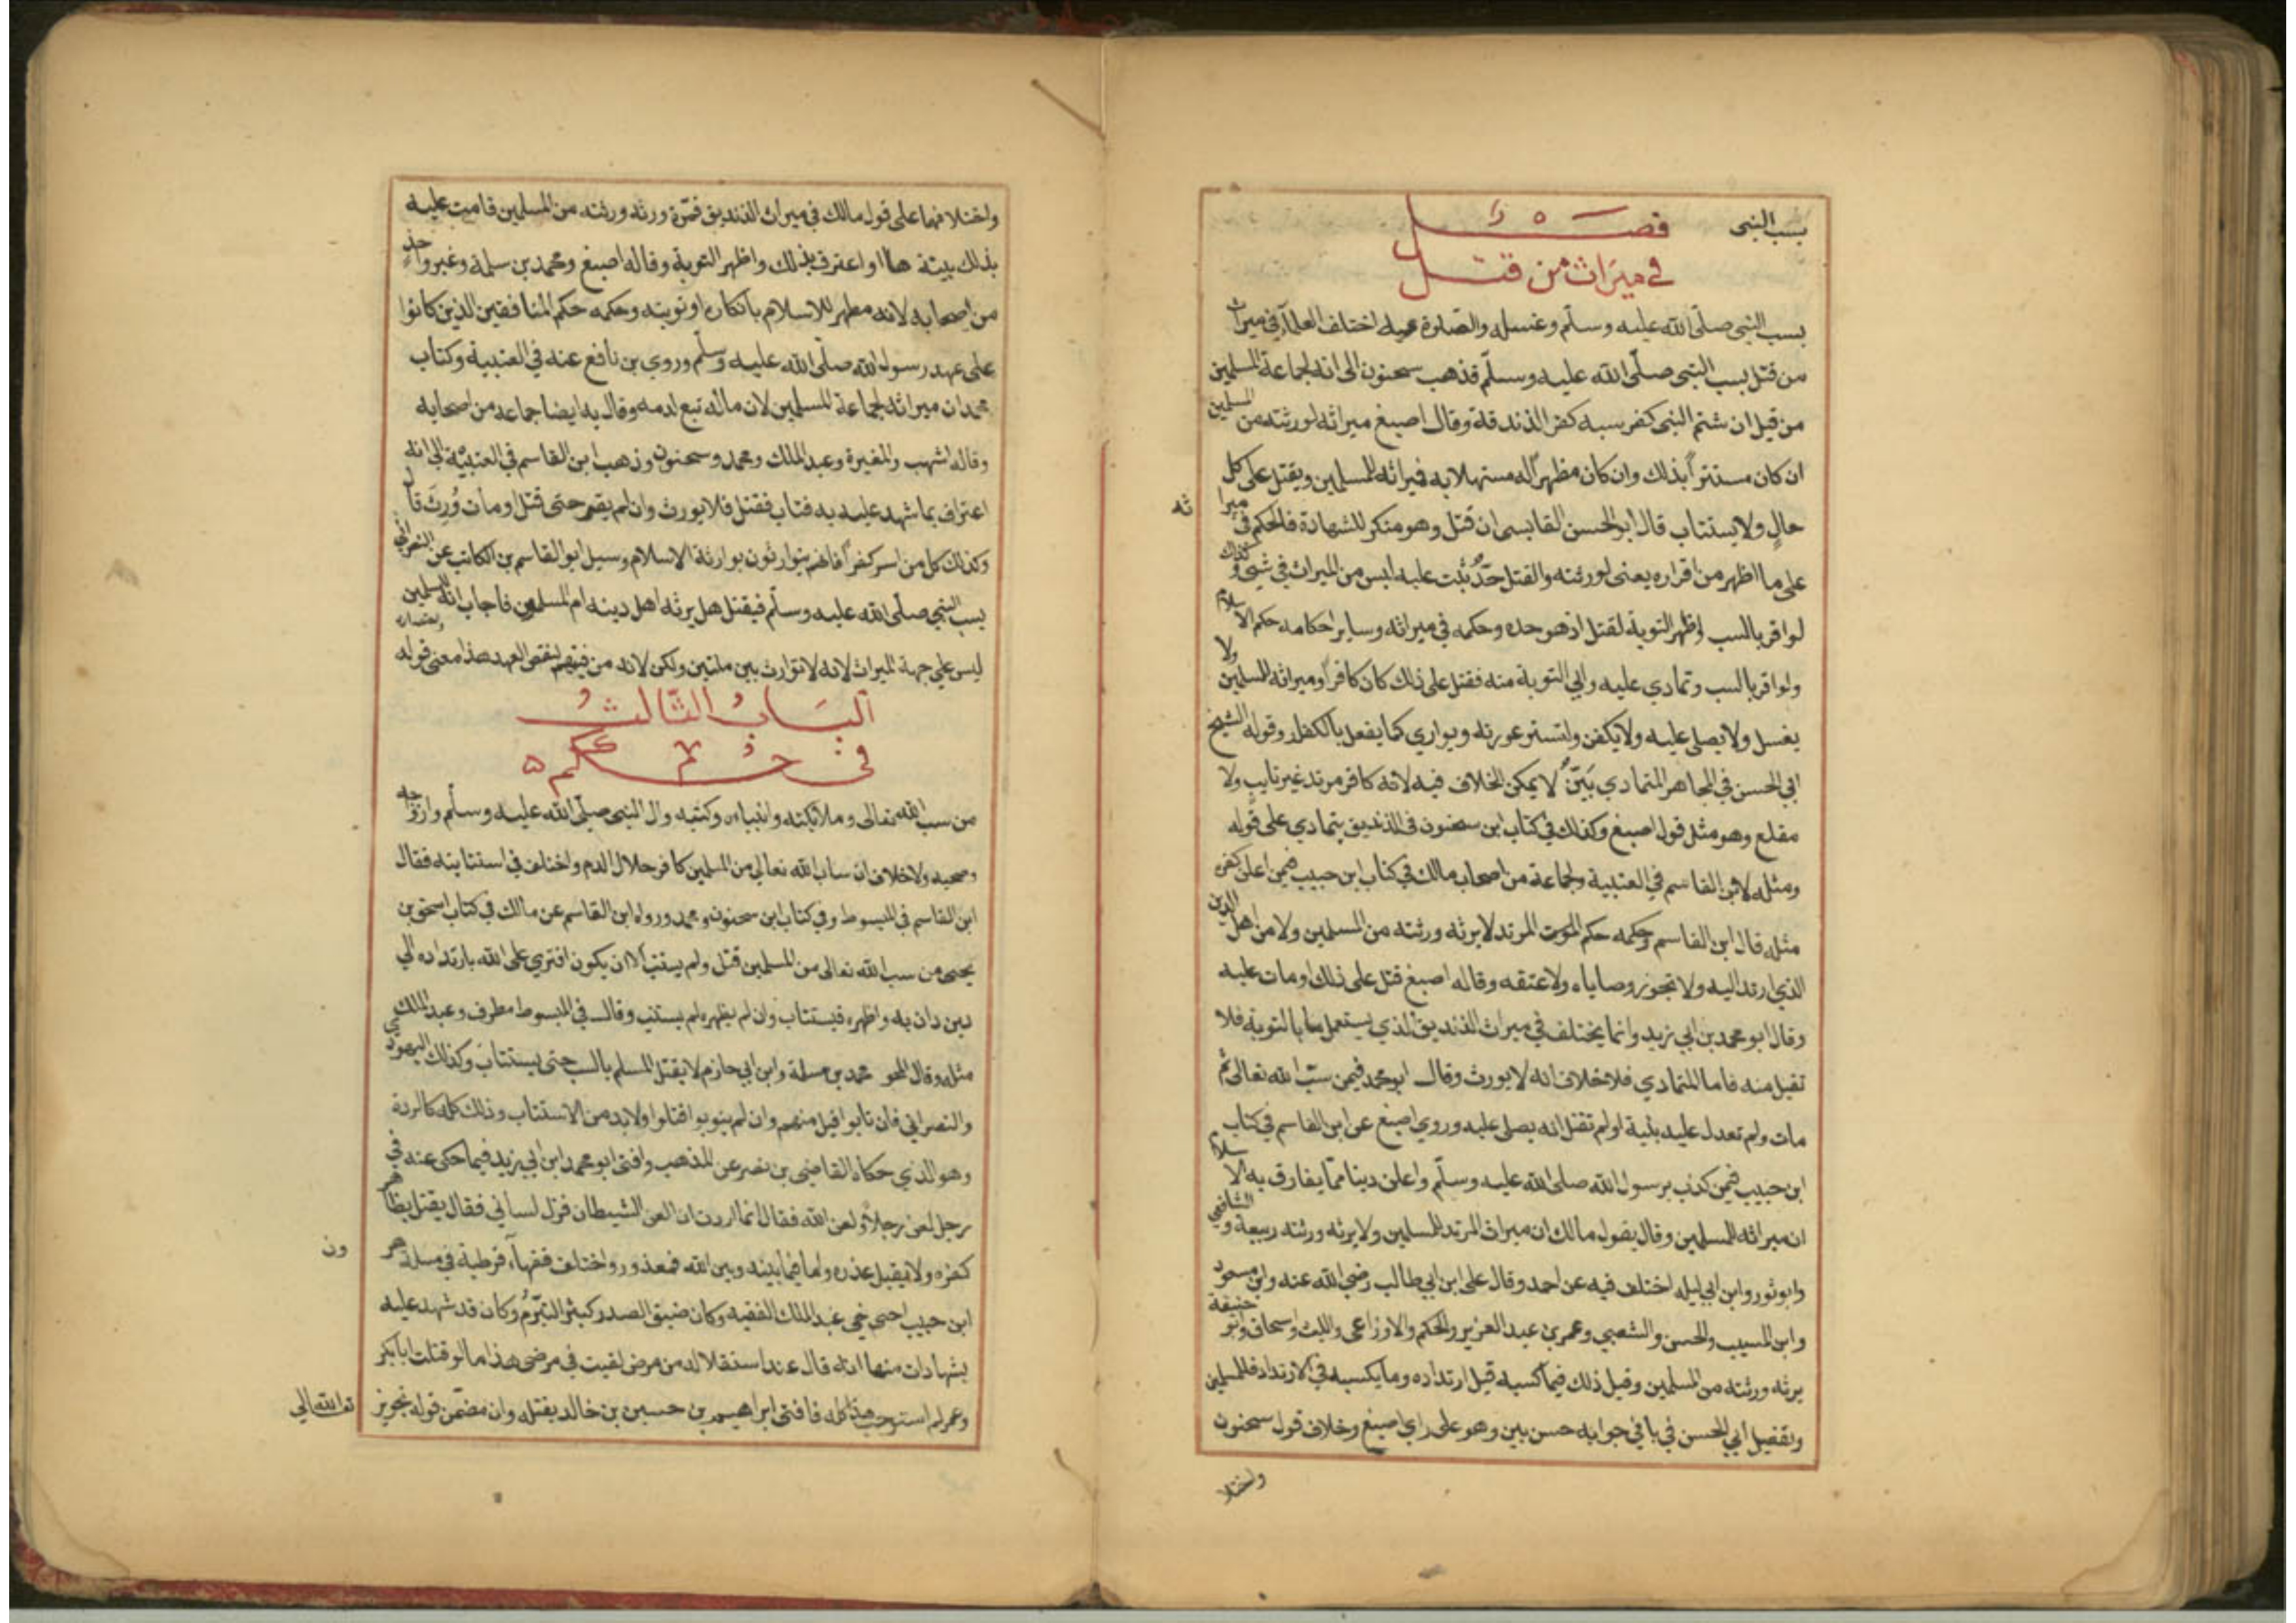 بسب النبي
فصل
في ميراث من قتل
بسب النبي صلى الله عليه وسلم وغسله والصلاة عليه اختلف العلماء في ميراث
من قتل بسب النبي صلى الله عليه وسلم فذهب سحنون الى انه لجماعة المسلمين
من قبل ان شتم النبي كفر سبه كفر الزندقة وقال اصبغ ميراثه لورثته من المسلمين
ان كان مستترا بذلك وان كان مظهرا له مستهلا به فميراثه للمسلمين ويقتل على كل
حال ولا يستتاب قال ابو الحسن القابسي ان قتل وهو منكر للشهادة فالحكم في ميراثه
على ما اظهر من اقراره يعني لورثته والقتل حد ثبت عليه ليس من الميراث في شيء وكذلك
لو اقر بالسب واظهر التوبة لقتل اذ هو حده وحكمه في ميراثه وساير احكامه حكم الاسلام
ولو اقر بالسب وتمادي عليه وابي التوبة منه فقتل على ذلك كان كافرا وميراثه للمسلمين ولا
يغسل ولا يصلي عليه ولا يكفن وتستر عورته ويواري كما يفعل بالكفار وقوله الشيخ
ابي الحسن في المجاهر المتمادي بين لا يمكن الخلاف فيه لانه كافر مرتد غير تايب ولا
مقلع وهو مثل قول اصبغ وكذلك في كتاب ابن سحنون في الزنديق يتمادي على قوله
ومثله لابن القاسم في العتبية ولجماعة من اصحاب مالك في كتاب ابن حبيب فيمن اعلن كفره
مثله قال ابن القاسم وحكمه حكم المرتد لا يرثه ورثته من المسلمين ولا من اهل الدين
الذي ارتد اليه ولا تجوز وصاياه ولا عتقه وقاله اصبغ قتل على ذلك او مات عليه
وقال ابو محمد بن ابي زيد وانما يختلف في ميراث الزنديق الذي يستهل بالتوبة فلا
تقبل منه فاما المتمادي فلا خلاف انه لا يورث وقال ابو محمد فيمن سب الله تعالى ثم
مات ولم تعدل عليه بينة او لم تقبل انه يصلى عليه وروي اصبغ عن ابن القاسم في كتاب
ابن حبيب فيمن كذب برسول الله صلى الله عليه وسلم واعلن دينا مما يفارق به الاسلام
ان ميراثه للمسلمين وقال بقول مالك ان ميراث المرتد للمسلمين ولا يرثه ورثته ربيعة والشافعي
وابو ثور وابن ابي ليله اختلف فيه عن احمد وقال علي ابن ابي طالب رضي الله عنه وابن مسعود
وابن المسيب والحسن والشعبي وعمر بن عبد العزيز والحكم والاوزاعي والليث واسحاق وابو حنيفة
يرثه ورثته من المسلمين وقيل ذلك فيما كسبه قبل ارتداده وما يكسبه في الارتداد فللمسلمين
وتفصيل أبي الحسن في باقي جوابه حسن بين وهو على راي اصبغ وخلاف قول سحنون
واختلا
واختلافهما على قول مالك في ميراث الزنديق فمرة ورثه ورثته من المسلمين قامت عليه
بذلك بينة او اعترف بذلك واظهر التوبة وقاله اصبغ ومحمد بن سلمة وغير واحد
من اصحابه لانه مظهر للاسلام بانكاره او توبته وحكمه حكم المنافقين الذين كانوا
على عهد رسول الله صلى الله عليه وسلم وروي بن نافع عنه في العتبية وكتاب
محمد ان ميراثه لجماعة المسلمين لان ماله تبع لدمه وقال به ايضا جماعه من اصحابه
وقاله اشهب والمغيرة وعبد الملك ومحمد وسحنون وذهب ابن القاسم في العتبية الى انه
اعترف بما شهد عليه به فتاب فقتل فلا يورث وان لم يقر حتى قتل او مات ورث قال
وكذلك كل من اسر كفرا فانهم يتوارثون بوارثة الاسلام وسيل ابو القاسم بن الكاتب عن النصراني
يسب النبي صلى الله عليه وسلم فيقتل هل يرثه اهل دينه ام المسلمون فاجاب انه للمسلمين
ليس علي جهة الميراث لانه لا توارث بين ملتين ولكن لانه من فيئهم لنقض العهد هذا معنى قوله واختصاره
الباب الثالث
في حكم
من سب الله تعالى وملايكته وانبياءه وكتبه وال النبي صلى الله عليه وسلم وازواجه
وصحبه ولا خلاف ان ساب الله تعالي من المسلمين كافر حلال الدم واختلف في استتابته فقال
ابن القاسم في المبسوط وفي كتاب ابن سحنون ومحمد ورواه ابن القاسم عن مالك في كتاب اسحق بن
يحيى من سب الله تعالى من المسلمين قتل ولم يستتب الا ان يكون افتري على الله بارتداده الي
دين دان به واظهره فيستتاب وان لم يظهره لم يستتب وقال في المبسوط مطرف وعبد الملك
مثله وقال المخزومي محمد بن مسلمة وابن ابي حازم لا يقتل المسلم بالسب حتى يستتاب وكذلك اليهودي
والنصراني فان تابوا قبل منهم وان لم يتوبوا قتلوا ولا بد من الاستتاب وذلك كله كالردة
وهو الذي حكاه القاضي بن نصر عن المذهب وافتى ابو محمد ابن ابي زيد فيما حكى عنه في
رجل لعن رجلا ولعن الله فقال انما اردت ان العن الشيطان فزل لساني فقال يقتل بظاهر
كفره ولا يقبل عذره واما فيما بينه وبين الله فمعذور واختلف فقهاء قرطبة في مسلة هرون
ابن حبيب اخي عبد الملك الفقيه وكان ضيق الصدر كبثر التبرم وكان قد شهد عليه
بشهادات منها انه قال عند استقلاله من مرض لقيت في مرضي هذا ما لو قتلت ابا بكر
وعمر لم استوجب هذا كله فافتى ابراهيم بن حسين بن خالد بقتله وان مضمن قوله تجويز
تع الله تعالي